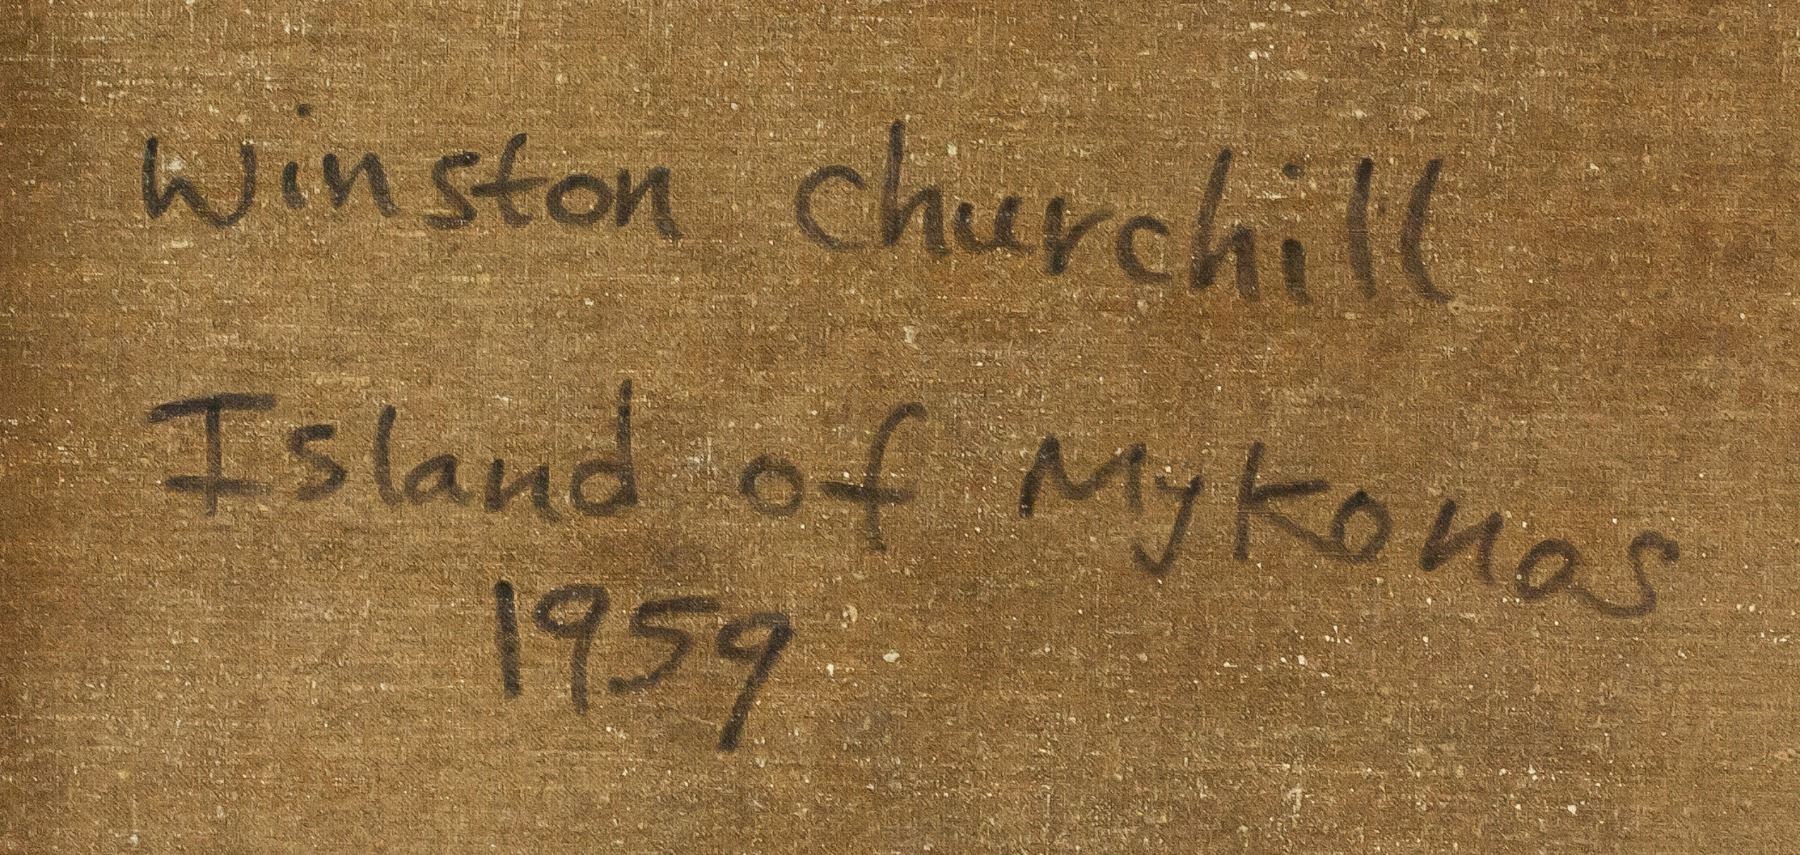 Winston Churchill
Island of Mykonos
1959